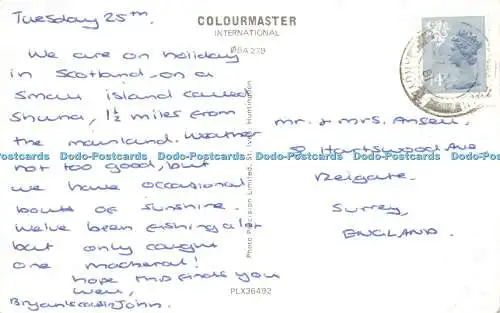 Tuesday 25th.
We are on holiday
in Scotland - on a
small island called
Shuna, 1½ miles from
the mainland. Weather
not too good, but
we have occasional
bouts of sunshine.
We've been fishing a lot
but only caught
one mackeral!
hope this finds you
well,
John.
COLOURMASTER
INTERNATIONAL
ØBA 279
Photo Precision Limited, St. Ives, Huntingdon
PLX36492
Mr. & Mrs. Ansell,
8 Hartswood Ave
Reigate.
Surrey,
ENGLAND.
Dodo-Postcards Dodo-Postcards Dodo-Postcards Dodo-Postcards Dodo-Postcards Dodo-Postcards